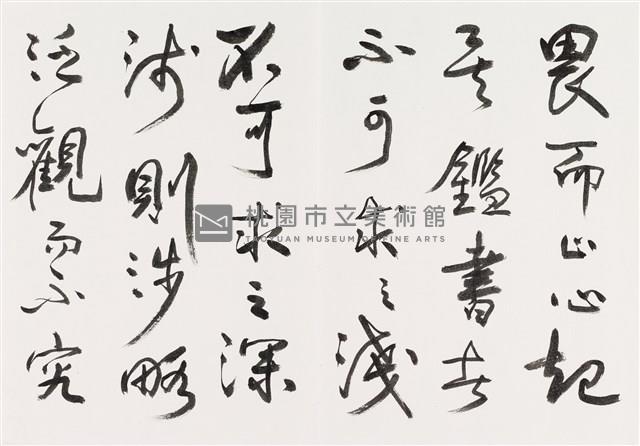 畏而止心起
矣鑑書者
不可求之淺
不可求之深
浅則涉略
泛觀而不究
桃園市立美術館
TAOYUAN MUSEUM OF FINE ARTS